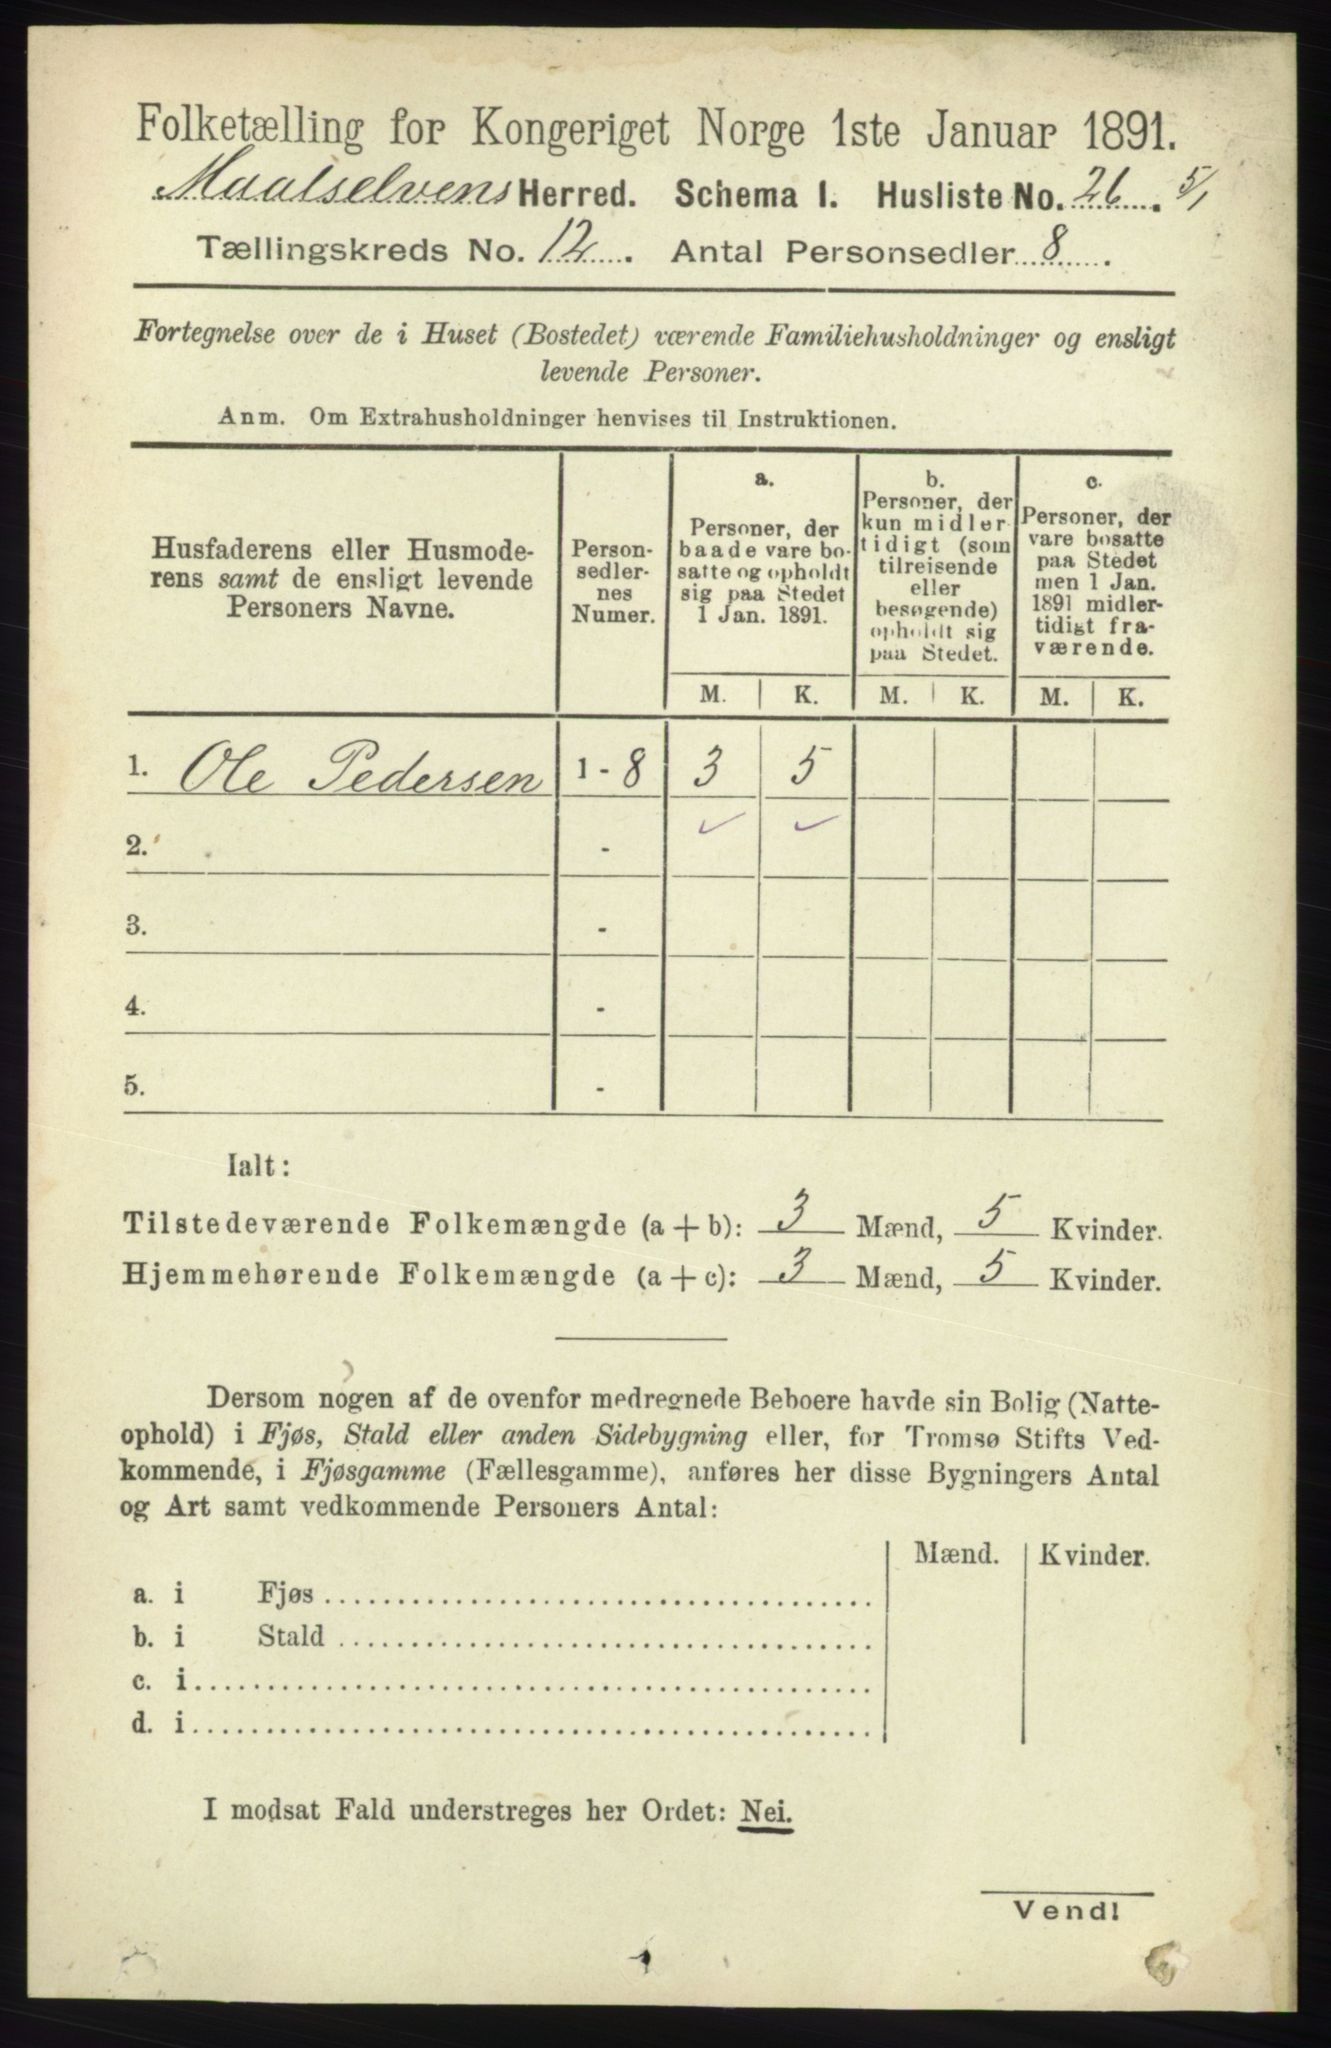 Folketælling for Kongeriget Norge 1ste Januar 1891.
Maalselvens Herred. Schema I. Husliste No. 26. 5/1
Tællingskreds No. 12. Antal Personsedler 8.
Fortegnelse over de i Huset (Bostedet) værende Familiehusholdninger og ensligt
levende Personer.
Anm. Om Extrahusholdninger henvises til Instruktionen.
Husfaderens eller Husmode-
rens samt de ensligt levende
Personers Navne.
Person-
sedler-
nes
Numer.
a.
Personer, der
baade vare bo-
satte og opholdt
sig paa Stedet
1 Jan. 1891.
M. K.
b.
Personer, der
kun midler
tidigt (som
tilreisende
eller
besøgende)
opholdt sig
paa Stedet.
M. K.
c.
Personer, der
vare bosatte
paa Stedet
men 1 Jan.
1891 midler-
tidigt fra-
værende.
M. K.
1. Ole Pedersen 1 - 8 3 5
2. - ✓ ✓
3. -
4. -
5. -
Ialt:
Tilstedeværende Folkemængde (a + b): 3 Mænd, 5 Kvinder.
Hjemmehørende Folkemængde (a + c): 3 Mænd, 5 Kvinder.
Dersom nogen af de ovenfor medregnede Beboere havde sin Bolig (Natte-
ophold) i Fjøs, Stald eller anden Sidebygning eller, for Tromsø Stifts Ved-
kommende, i Fjøsgamme (Fællesgamme), anføres her disse Bygningers Antal
og Art samt vedkommende Personers Antal:
Mænd. Kvinder.
a. i Fjøs
b. i Stald
c. i
d. i
I modsat Fald understreges her Ordet: Nei.
Vend!